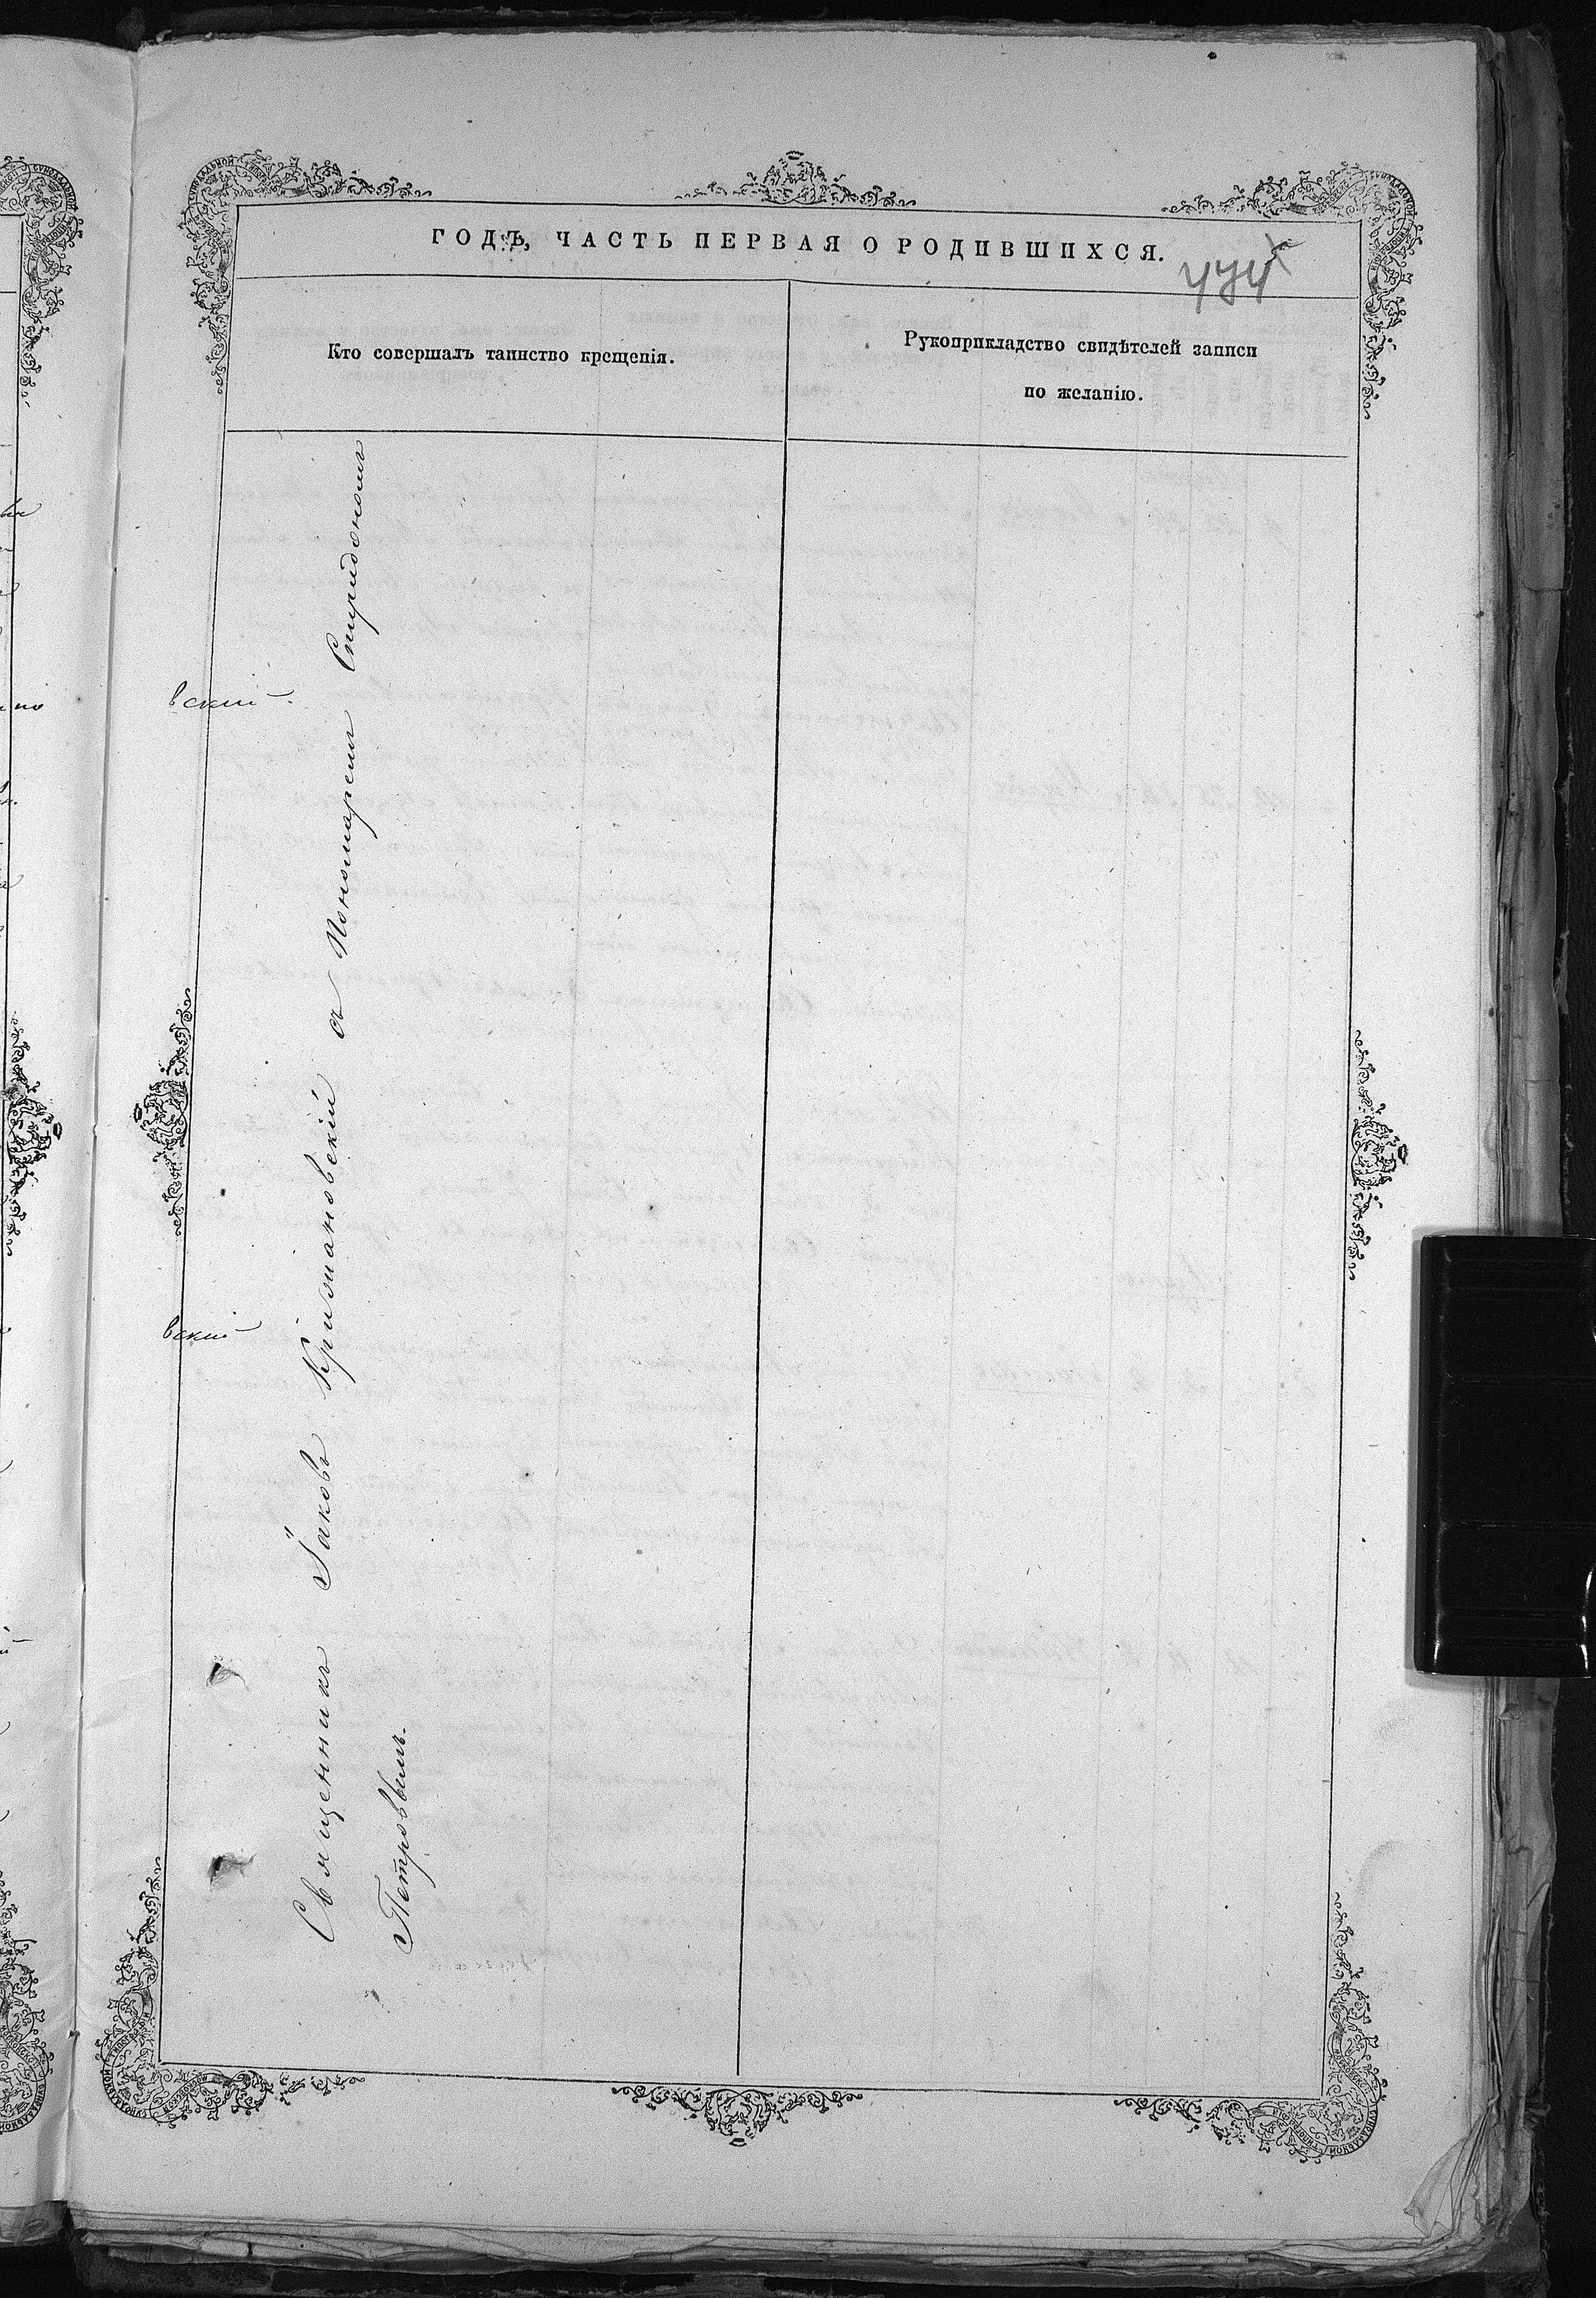 ГОДЪ, ЧАСТЬ ПЕРВАЯ О РОДИВШИХСЯ.
474
Кто совершалъ таинство крещенія.
Рукоприкладство свидѣтелей записи
по желанію.
вский
вский
Священникъ Іаковъ Крижановскій съ Пономаремъ Спиридономъ
Петровымъ.